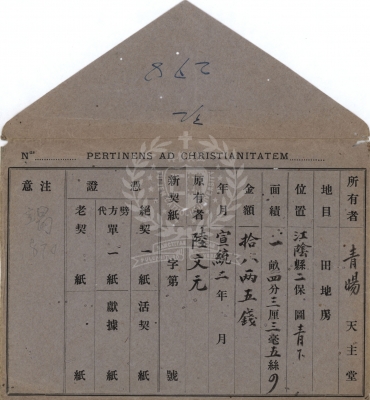 298
32
Nus ............ PERTINENS AD CHRISTIANITATEM ............
所有者 青暘 天主堂
地目 田地房
位置 江陰縣二保 圖 青下
面績 一畝四分三厘三毫五絲
金額 拾八兩五錢
年月 宣統二年 月
原有者 陸文元
新契紙 字第 號
憑 絕契一紙 活契 紙
證 代方 勞單一紙 獻據 紙
老契 紙
注意